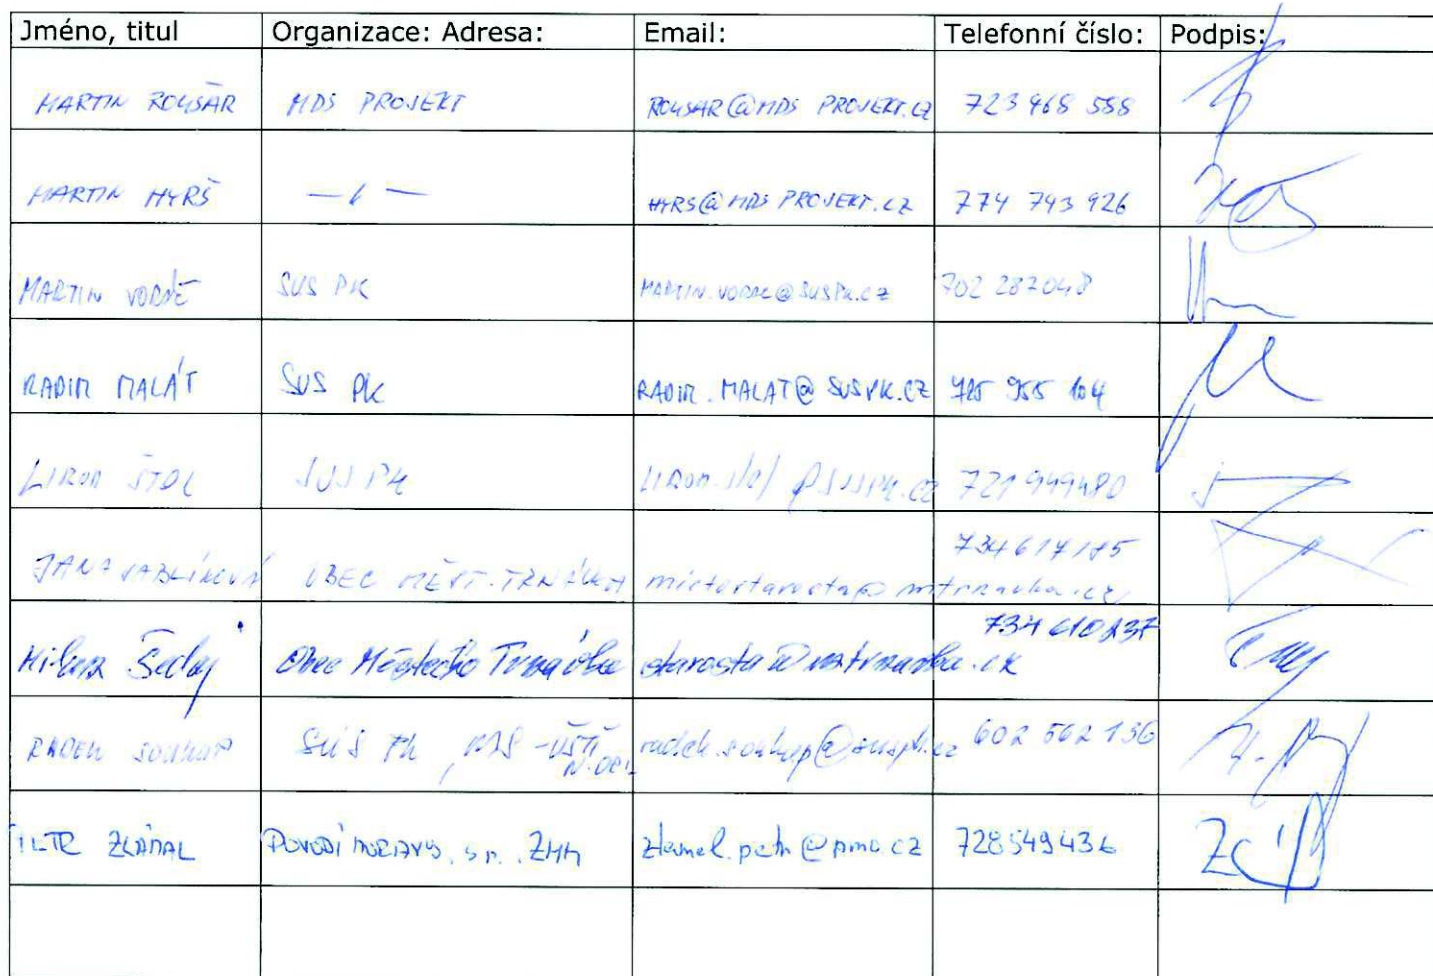 Jméno, titul Organizace: Adresa: Email: Telefonní číslo: Podpis:
MARTIN ROUŠAR MDS PROJEKT ROUSAR@MDS PROJEKT.CZ 723 468 588
MARTIN HYRŠ —〃— HYRS@MDS PROJEKT.CZ 774 743 926
MARTIN SUS PK 702 287048
RADIM MALÁT SUS PK RADIM.MALAT@SUSPK.CZ 725 955 104
ŠTOL SUS PK 721949480
734617185
JANA OBEC MĚST. TRNÁVKA mistostarosta@mtrnavka.cz
734 610 237
Milan Šedý Obec Městečko Trnávka starosta@mtrnavka.cz
RADEK SOUKUP SÚS PK, radek.soukup@suspk.cz 602 562 136
PETR ZLÁMAL POVODÍ MORAVY, s.p. zlamal.petr@pmo.cz 728549436